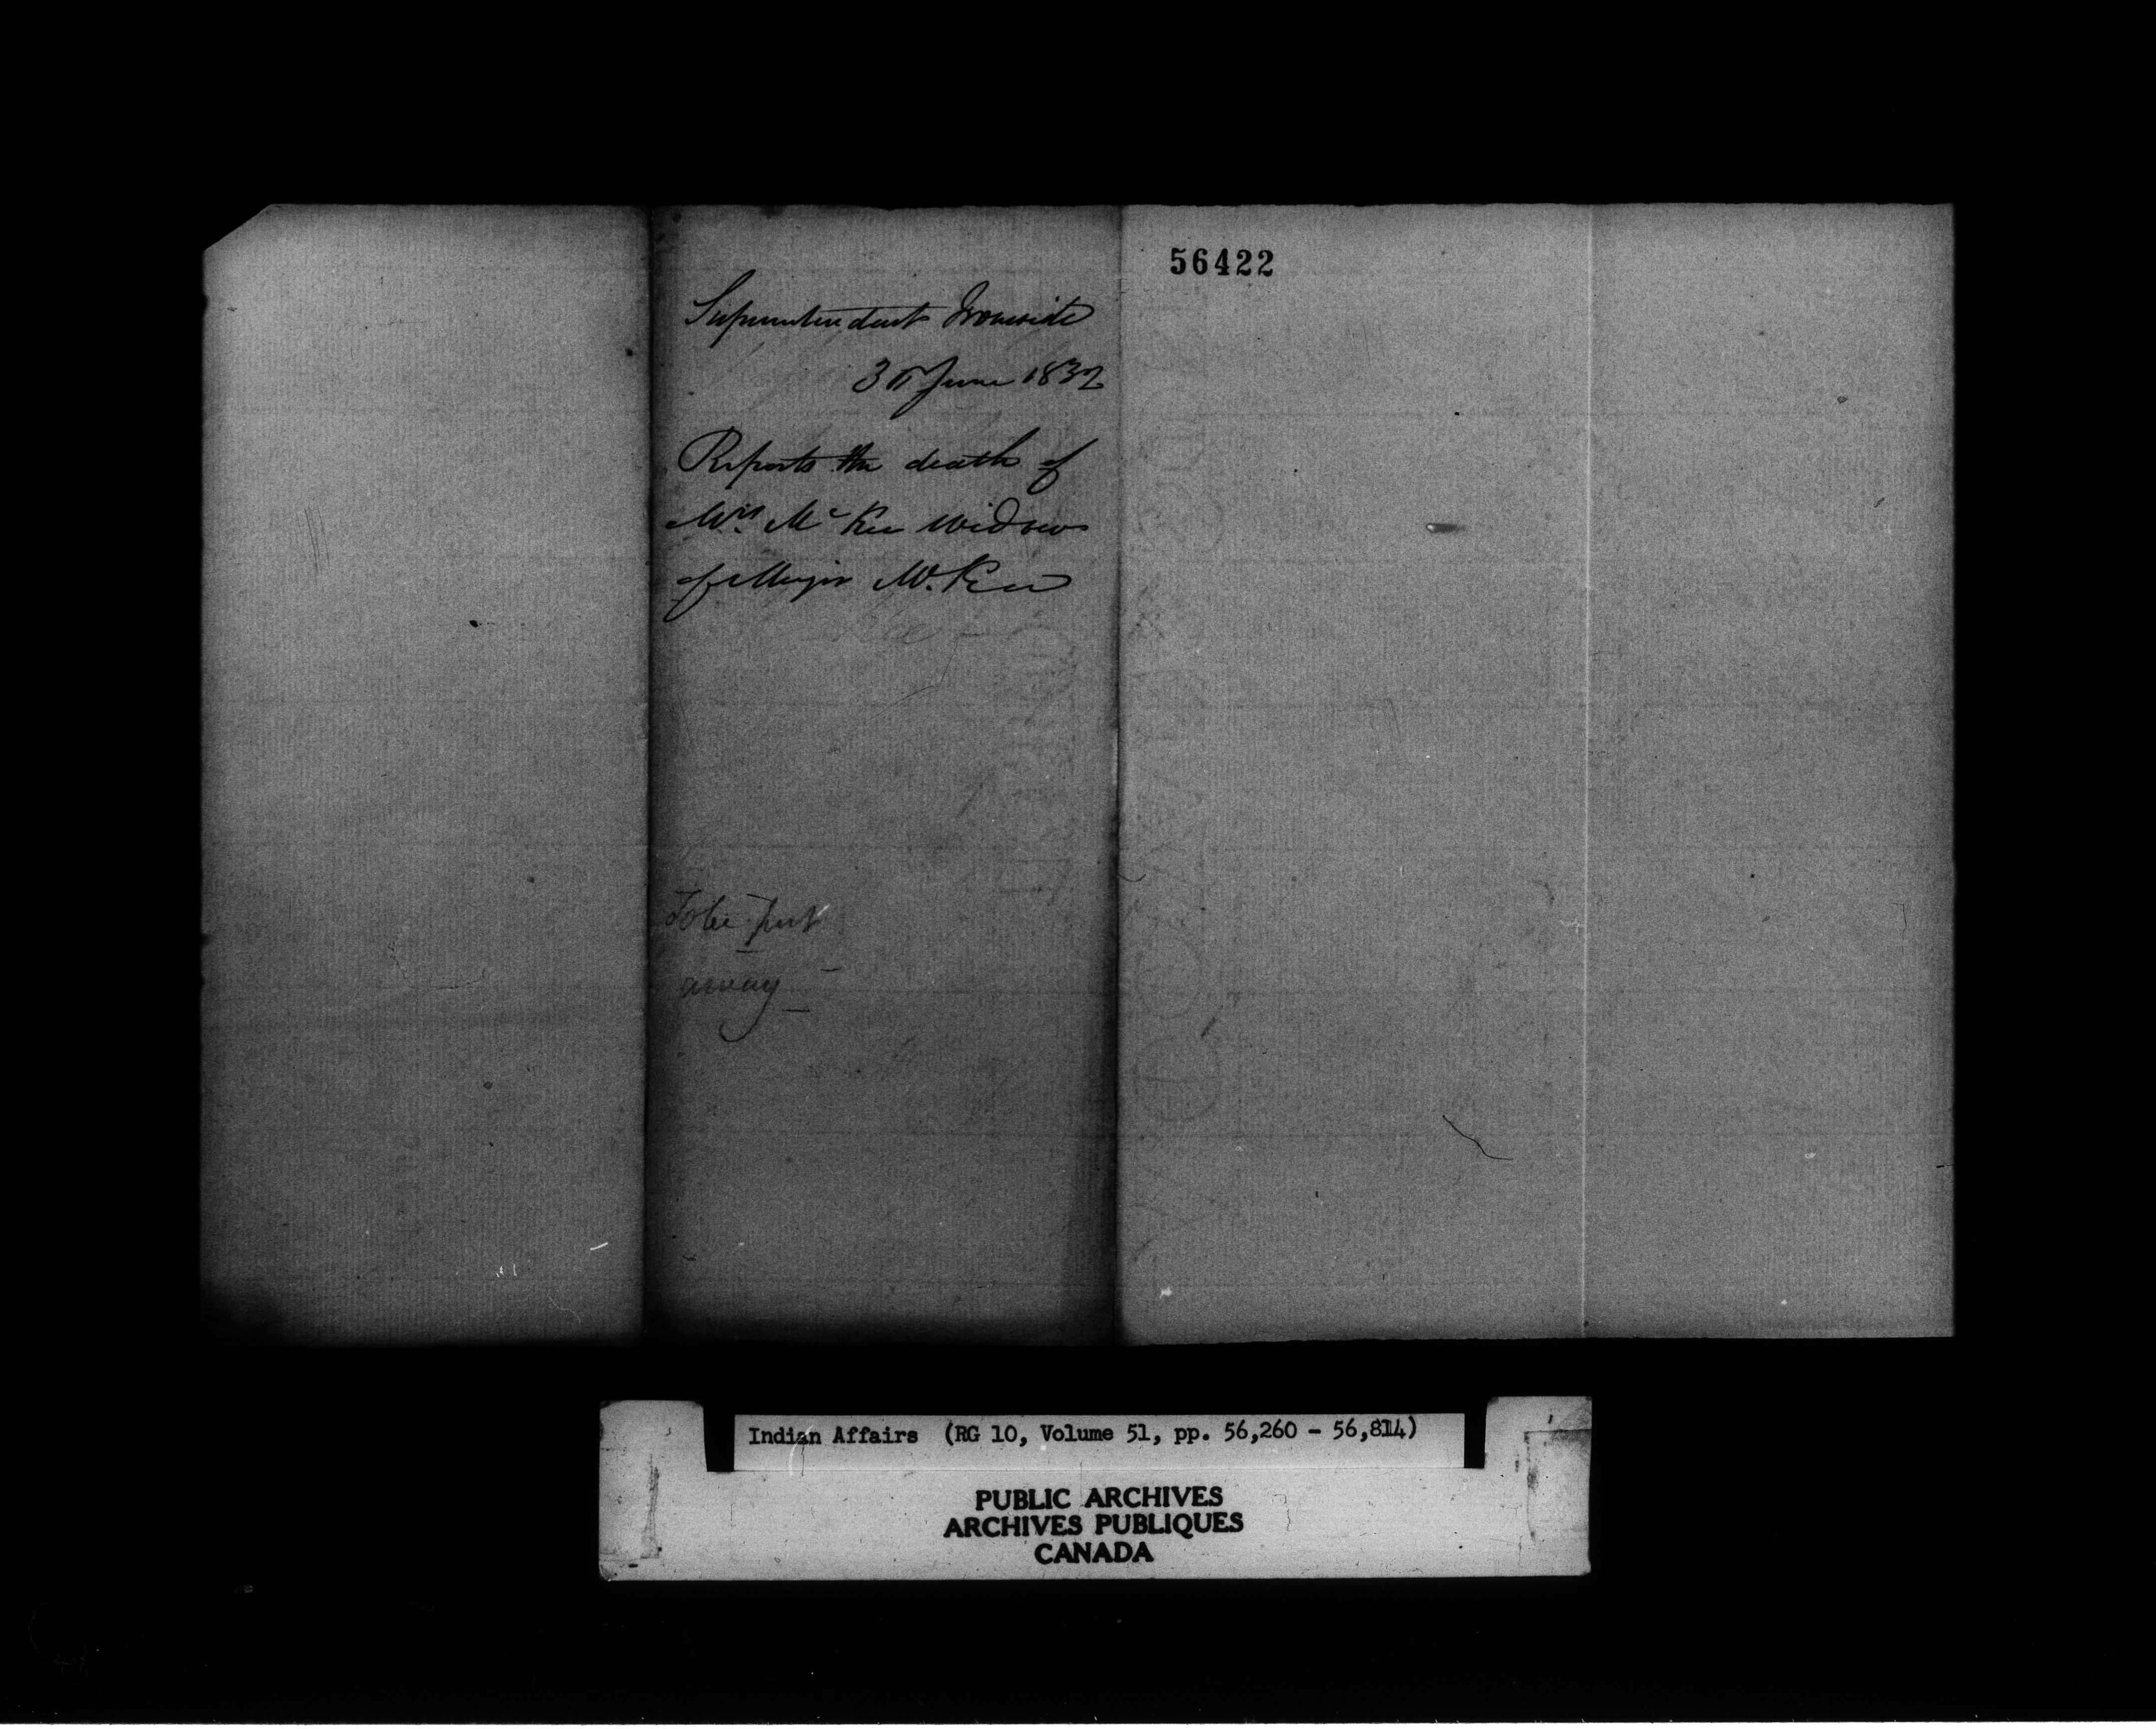 56422
Superintendent Ironside
June 1832
Reports the death of
Mrs. McKee widow
of Major McKee
To be put
away
Indian Affairs (RG 10, Volume 51, pp. 56,260 - 56,814)
PUBLIC ARCHIVES
ARCHIVES PUBLIQUES
CANADA